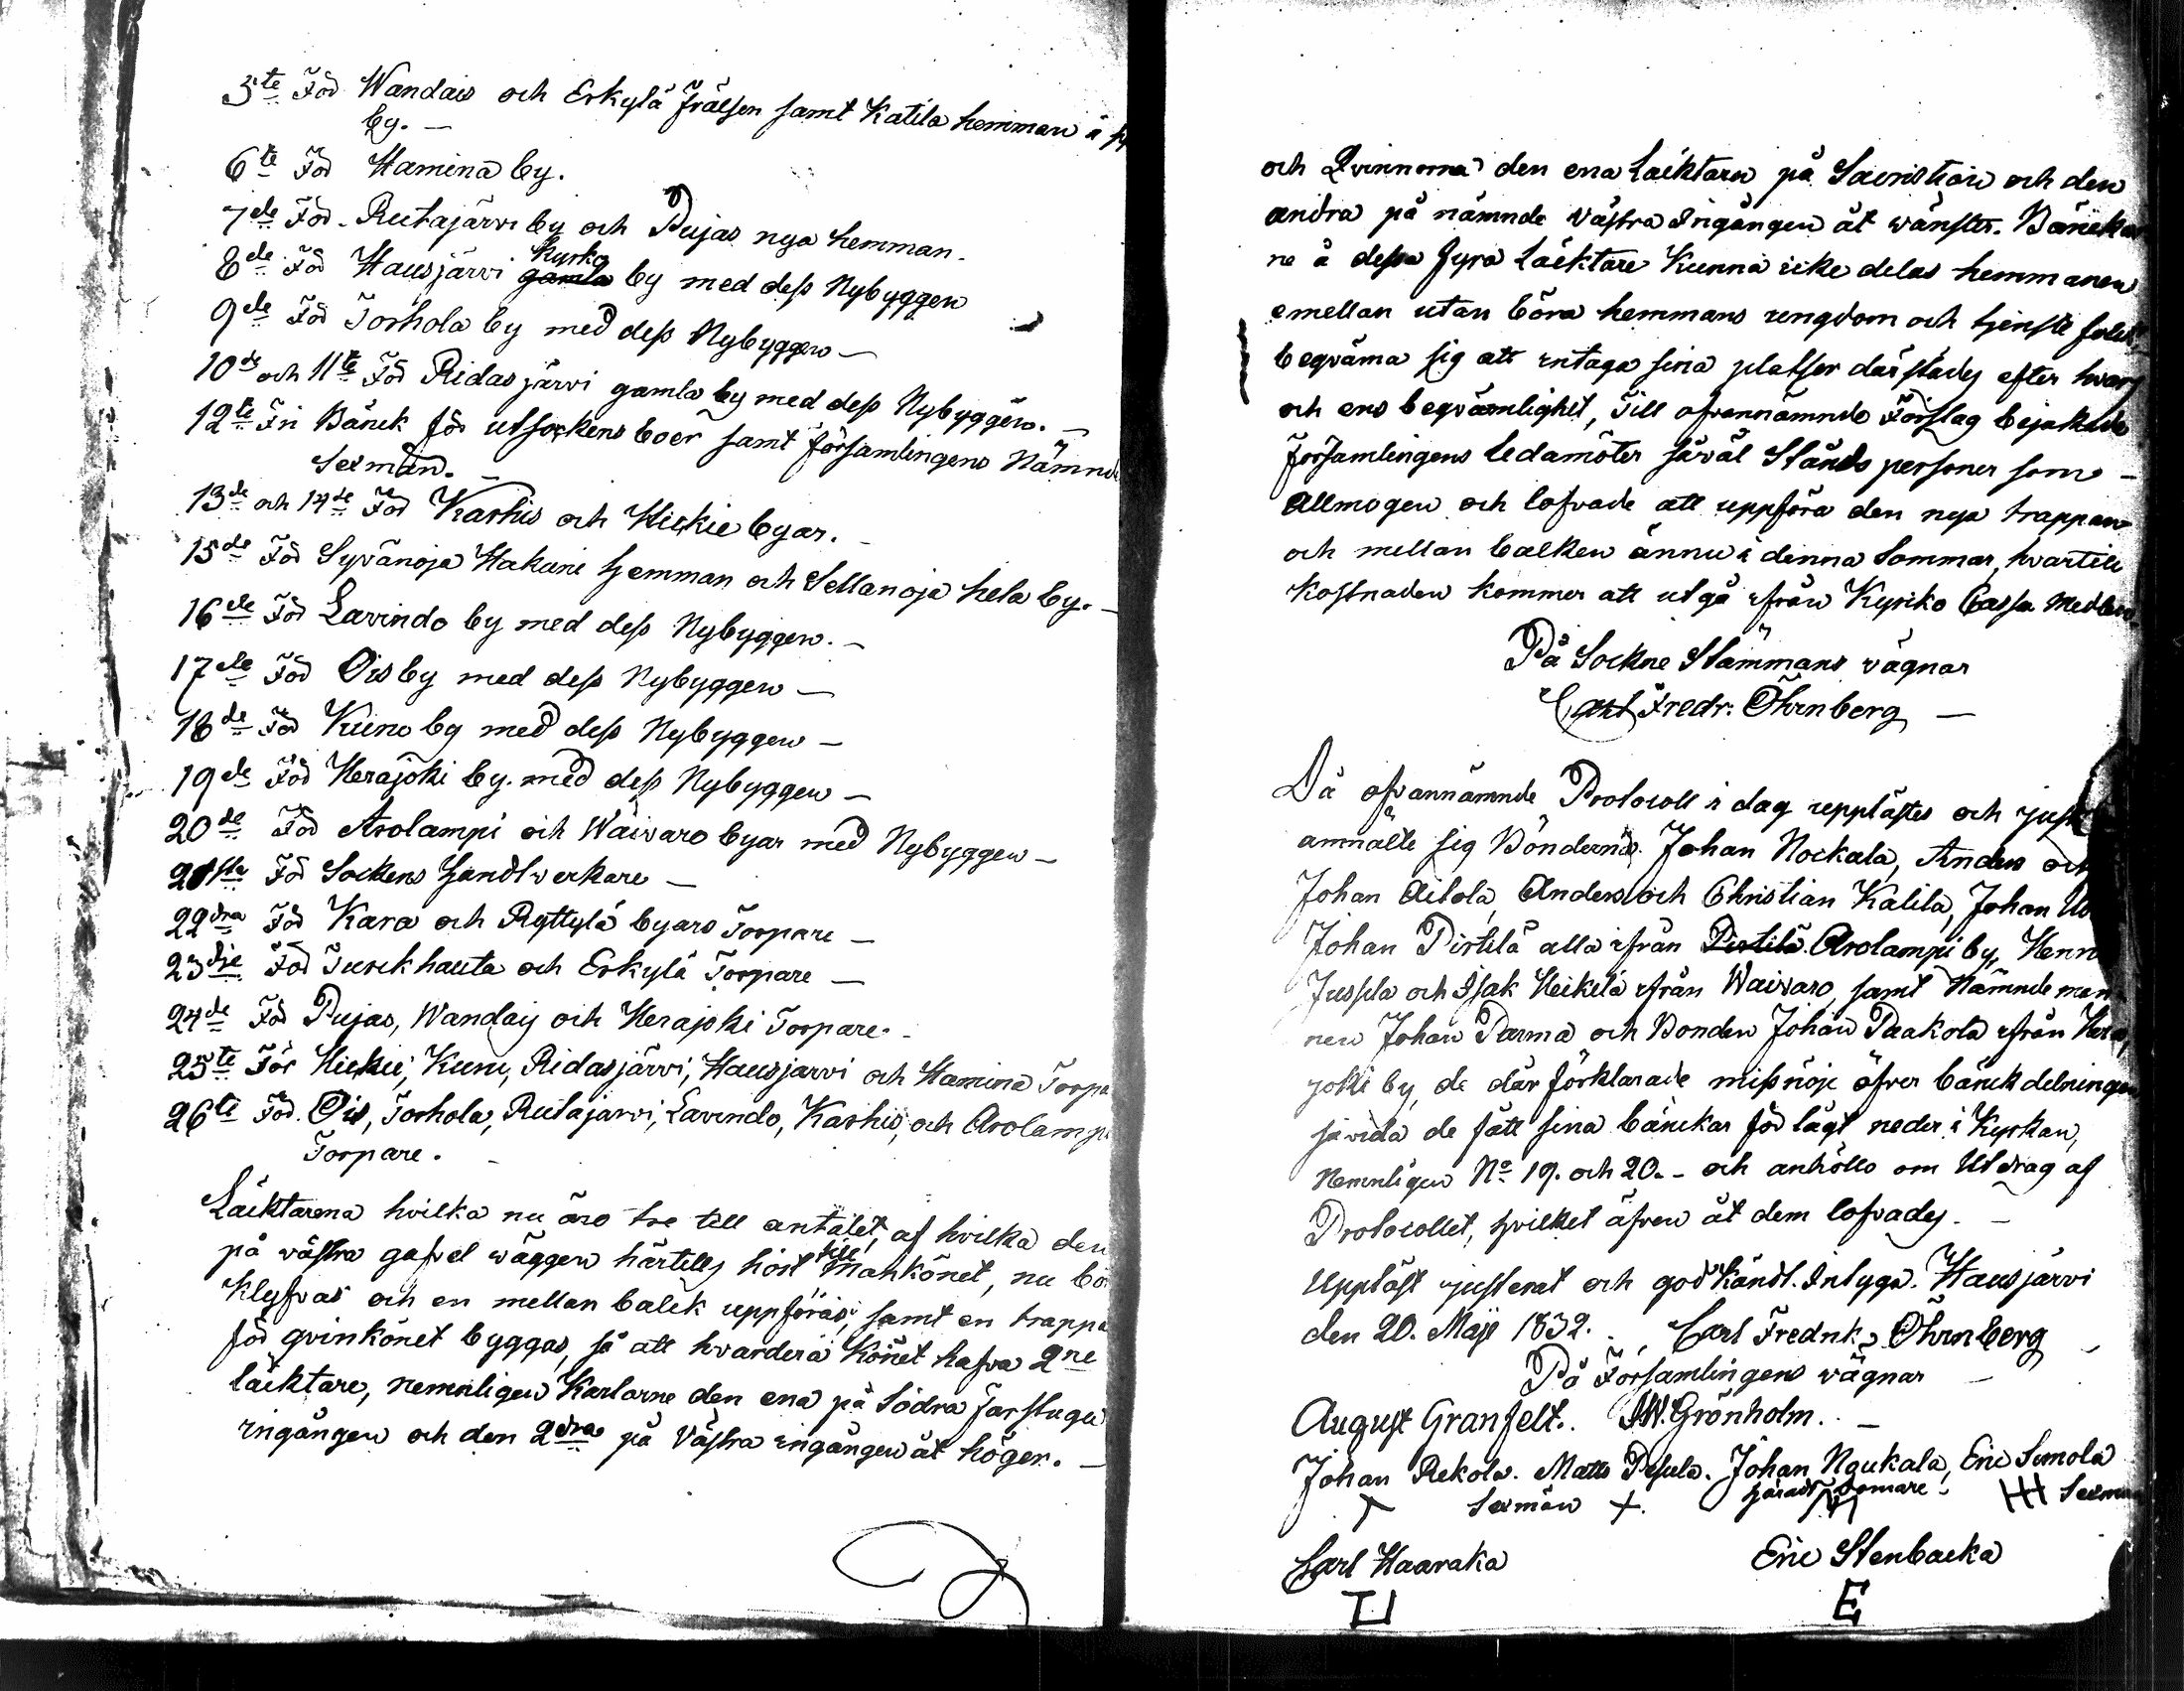 5te För Wandais och Erkylä Frälsen samt Katila hemman i
by. —
6te För Hamina by.
7de För Rutajärvi by och Pujas nya hemman.
8de För Hausjärvi Kyrko gamla by med dess Nybyggen
9de För Torhola by med dess Nybyggen —
10de och 11te För Ridasjärvi gamla by med dess Nybyggen. —
12te Fri Bänck för utsockens boer samt församlingens Nämnde
Sexmän. —
13de och 14de För Karhis och Hickie byar. —
15de För Syvänoja Hakuni hemman och Sellanoja hela by. —
16de För Lavindo by med dess Nybyggen. —
17de För Ois by med dess Nybyggen —
18de För Kuno by med dess Nybyggen —
19de För Herajoki by. med dess Nybyggen —
20de För Arolampi och Waivaro byar med Nybyggen —
21sta För Sockens Handtverkare —
22dra För Kara och Ryttylä byars Torpare —
23dje För Turckhauta och Erkylä Torpare —
24de För Pujas, Wandais och Herajoki Torpare. —
25te För Hickie, Kuno, Ridasjärvi, Hausjarvi och Hamina Torpa
26te För Ois, Torhola, Rutajarvi, Lavindo, Karhis, och Arolampi
Torpare. —
Läcktarena hvilka nu äro tre till antalet, af hvilka den
på västra gafvel wäggen härtills hört till Mankönet, nu bö
Klyfvas och en mellan balck uppföras, samt en trappa
för qvinkönet byggas, så att hvardera Könet hafva 2ne
läcktare, nemnligen Karlarne den ena på Södra Farstugu
ingången och den 2dra på Västra ingången åt höger. —
och Qvinnorna den ena Läcktaren på Sacristian och den
andra på nämnde västra Ingången åt wänster. Bänckar
ne å dessa fyra Läcktare Kunna icke delas hemmanen
emellan utan böra hemmans ungdom och tjenste folck
beqväma sig att intaga sina platser därstädes efter hvars
och ens beqvämlighet, Till ofvannämnde Förslag bejakade
Församlingens Ledamöter såväl Stånds personer som —
Allmogen och lofvade att uppföra den nya trappan
och mellan balken ännu i denna Sommar, hvartill
Kostnaden kommer att utgå ifrån Kyrko Cassa Medlen.
På Sockne Stämmans vägnar
Carl Fredr: Öhrnberg —
Då ofvannämnde Protocoll i dag upplästes och just
anmälte sig Bönderna Johan Nockala, Anders och
Johan Aitola, Anders och Christian Katila, Johan
Johan Pirtilä alla ifrån Pirtilä Arolampi by, Henr
Jussila och Isak Heikilä ifrån Waivaro, samt Nämnde man
nen Johan Parma och Bonden Johan Paakola ifrån Hera
joki by, de där förklarade missnöje öfver bänckdelningen
såvida de fått sina bänckar för lågt neder i Kyrkan,
Nemnligen No 19. och 20. — och anhöllo om Utdrag af
Protocollet, hvilket äfven åt dem lofvades. —
Uppläst justerat och godkändt. Intygar. Hausjärvi
den 20. Maji 1832. Carl Fredrik Öhrnberg
På Församlingens vägnar —
August Granfelt. J.W. Grönholm. —
Johan Rekola. Matts Pesula. Johan Noukala, Eric Simola
Sexmän Häradsdomare Sexman
Carl Haaraka Eric Stenbacka
E